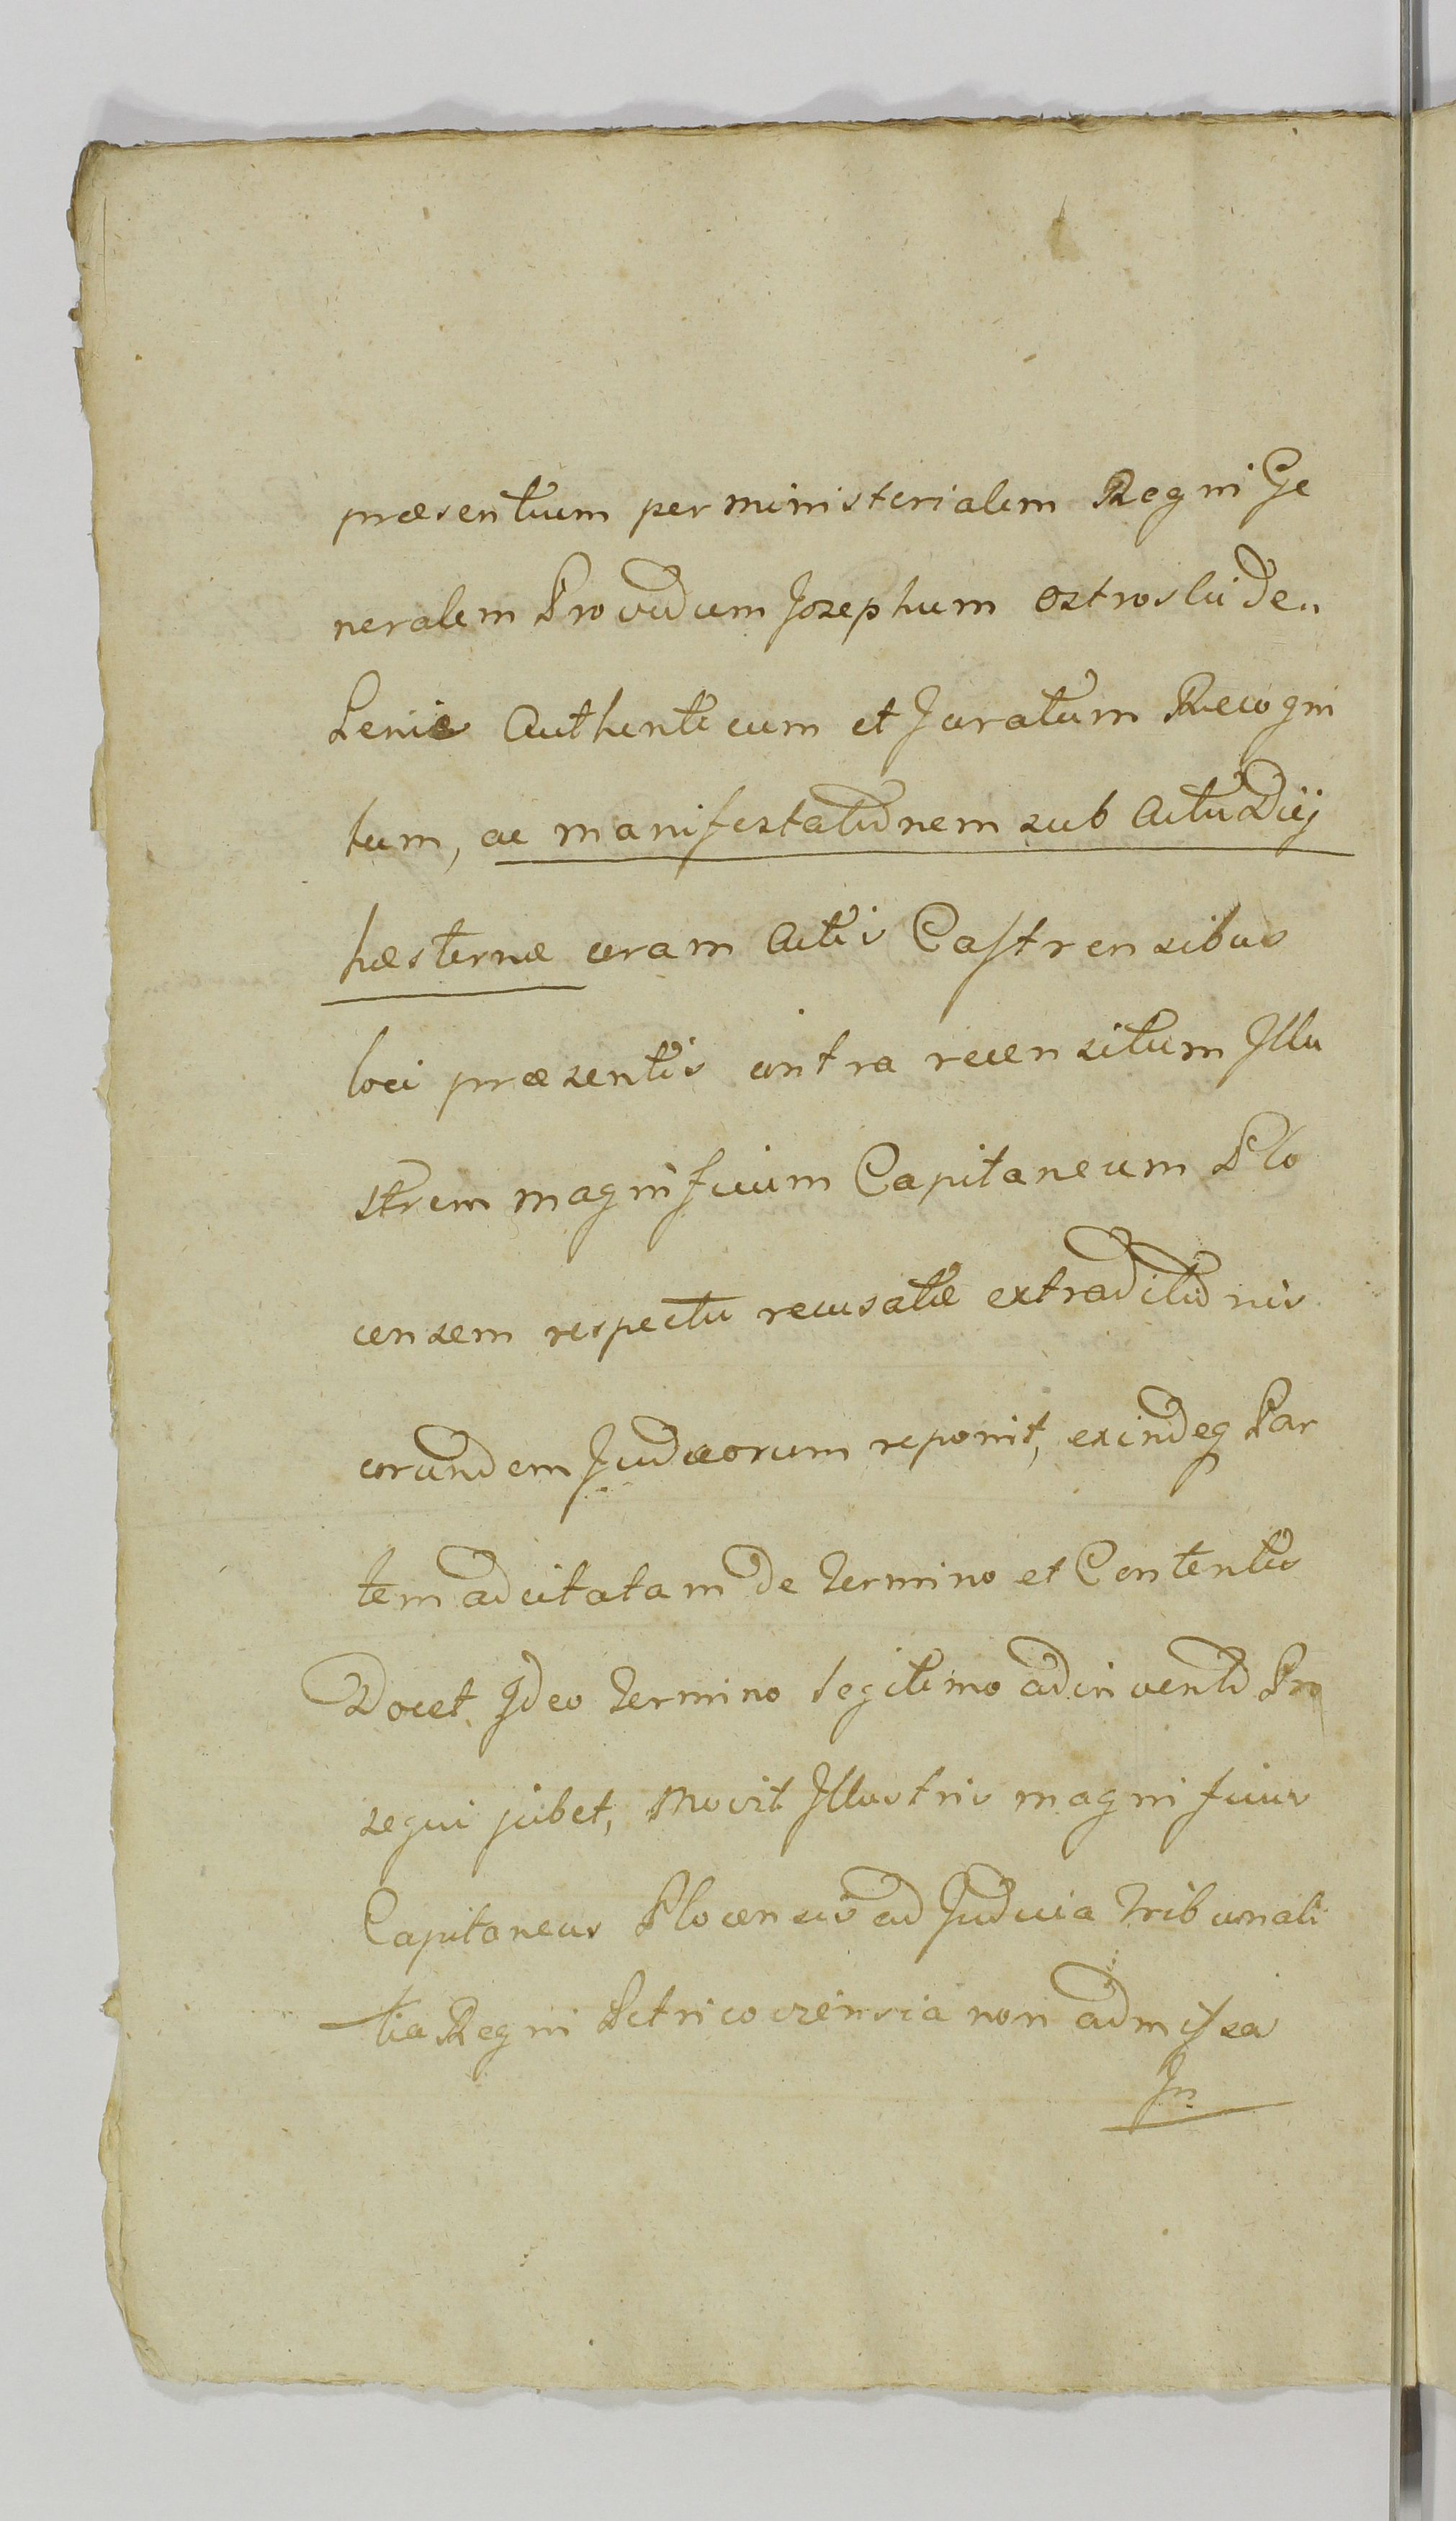 præsentium per ministerialem Regni Ge
neralem Providum Josephum
Authenticum et Juratum Recogni
tum, ac manifestationem sub Actu Diei
hæsternæ coram Actis Castrensibus
loci præsentis contra recensitum Illu
strem magnificum Capitaneum Plo
censem respectu recusatæ extraditionis
eorundem Judæorum reponit, exindeq Par
tem adcitatam de termino et Contentis
Docet Ideo termino legitimo adinvento Pro
sequi jubet, Movit Illustris magnificus
Capitaneus Plocensis ad Judicia Tribunali
tia Regni Petricoviensia non admissa
In